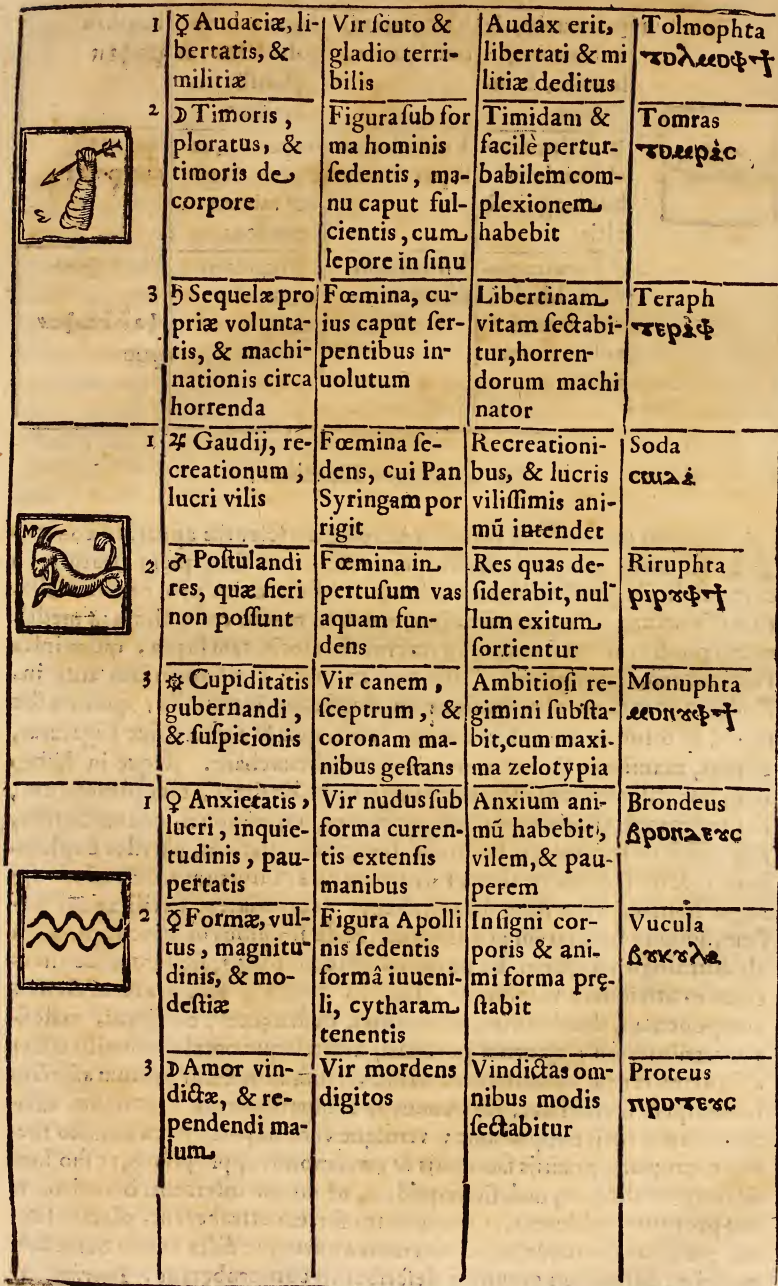 1
☿ Audaciæ, li-
bertatis, &
militiæ
Vir ſcuto &
gladio terri-
bilis
Audax erit,
libertati & mi
litiæ deditus
Tolmophta
ⲧⲟⲗⲙⲟⲫϯ
2
☽ Timoris,
ploratus, &
timoris de
corpore
Figura ſub for
ma hominis
ſedentis, ma-
nu caput ful-
cientis, cum
lepore in ſinu
Timidam &
facilè pertur-
babilem com-
plexionem
habebit
Tomras
ⲧⲟⲙⲣⲁ̀ⲥ
3
♄ Sequelæ pro
priæ volunta-
tis, & machi-
nationis circa
horrenda
Fœmina, cu-
ius caput ſer-
pentibus in-
uolutum
Libertinam
vitam ſectabi-
tur, horren-
dorum machi
nator
Teraph
ⲧⲉⲣⲁ̀ⲫ
1
♃ Gaudij, re-
creationum,
lucri vilis
Fœmina ſe-
dens, cui Pan
Syringam por
rigit
Recreationi-
bus, & lucris
viliſſimis ani-
mū intendet
Soda
ⲥⲱⲇⲁ̀
2
♂ Poſtulandi
res, quæ fieri
non poſſunt
Fœmina in
pertuſum vas
aquam fun-
dens
Res quas de-
ſiderabit, nul-
lum exitum
ſortientur
Riruphta
ⲣⲓⲣȣⲫϯ
3
☼ Cupiditatis
gubernandi,
& ſuſpicionis
Vir canem,
ſceptrum, &
coronam ma-
nibus geſtans
Ambitioſi re-
gimini ſubſta-
bit, cum maxi-
ma zelotypia
Monuphta
ⲙⲟⲛȣⲫϯ
1
♀ Anxietatis,
lucri, inquie-
tudinis, pau-
pertatis
Vir nudus ſub
forma curren-
tis extenſis
manibus
Anxium ani-
mū habebit,
vilem, & pau-
perem
Brondeus
ⲃⲣⲟⲛⲇⲉȣⲥ
2
☿ Formæ, vul-
tus, magnitu-
dinis, & mo-
deſtiæ
Figura Apolli
nis ſedentis
formâ iuueni-
li, cytharam
tenentis
Inſigni cor-
poris & ani-
mi forma prę-
ſtabit
Vucula
ⲃȣⲕȣⲗⲁ
3
☽ Amor vin-
dictæ, & re-
pendendi ma-
lum
Vir mordens
digitos
Vindictas om-
nibus modis
ſectabitur
Proteus
ⲡⲣⲟⲧⲉȣⲥ